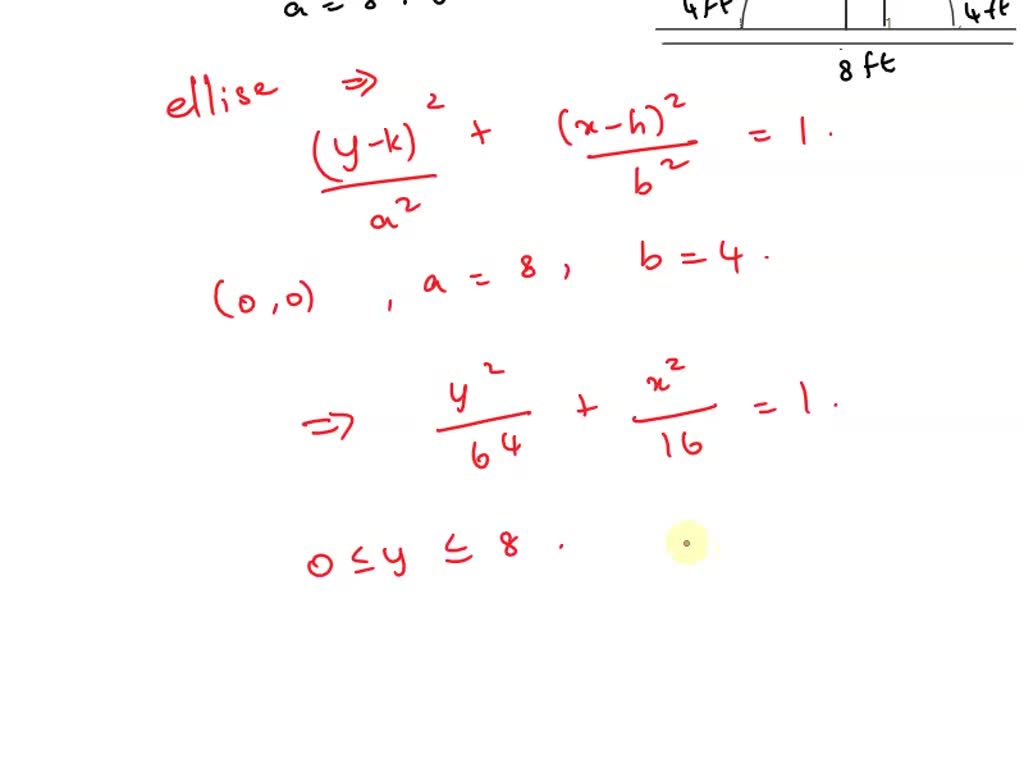 a = 8
4ft
4ft
8 ft
ellise ⇒
(y-k)²/a² + (x-h)²/b² = 1.
(0,0) , a = 8, b = 4.
⇒ y²/64 + x²/16 = 1.
0 ≤ y ≤ 8.